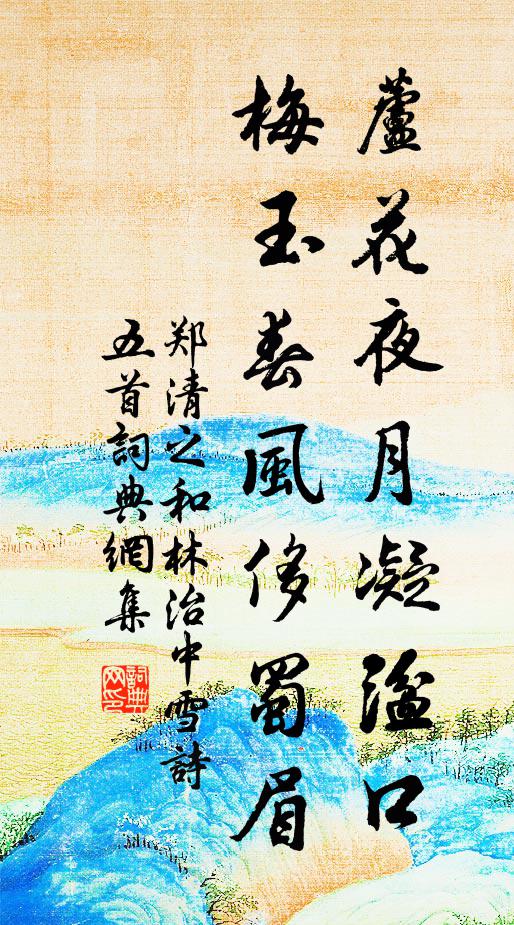 蘆花夜月凝湓口
梅玉春風侈蜀眉
郑清之和林治中雪詩
五首詞典網集
詞典网印